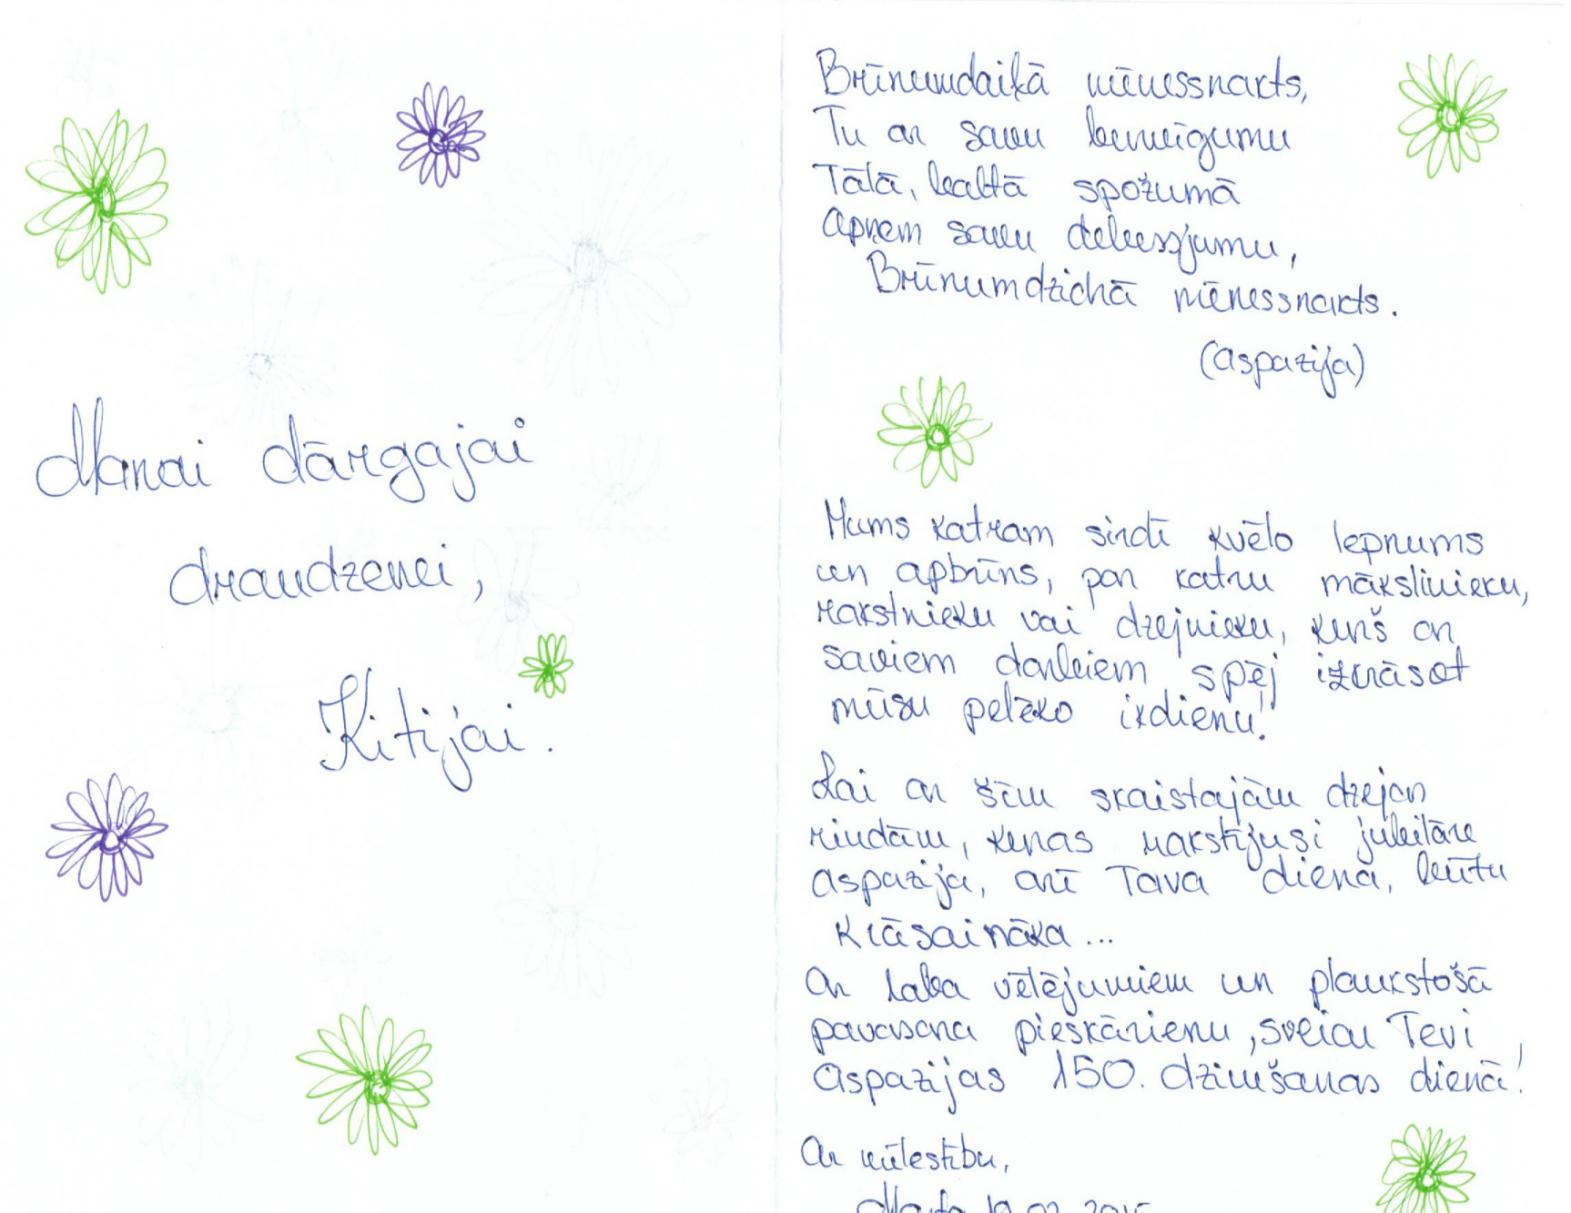 Manai dārgajai
draudzenei,
Kitijai.
Brīnumdaiļā mēnessnakts,
Tu ar savu burvīgumu
Tālā, baltā spožumā
Apņem savu debessjumu,
Brīnumdzidrā mēnessnakts.
(Aspazija)
Mums katram sirdī kvēlo lepnums
un apbrīns, par katru mākslinieku,
rakstnieku vai dzejnieku, kurš ar
saviem darbiem spēj izkrāsot
mūsu pelēko ikdienu!
Lai ar šīm skaistajām dzejas
rindām, kuras rakstījusi jubilāre
Aspazija, arī Tava diena, būtu
krāsaināka...
Ar laba vēlējumiem un plaukstošā
pavasara pieskārienu, sveicu Tevi
Aspazijas 150. dzimšanas dienā!
Ar mīlestību,
Marta